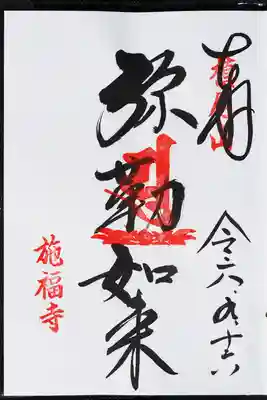 奉
令六、九、十六
弥勒如来
施福寺